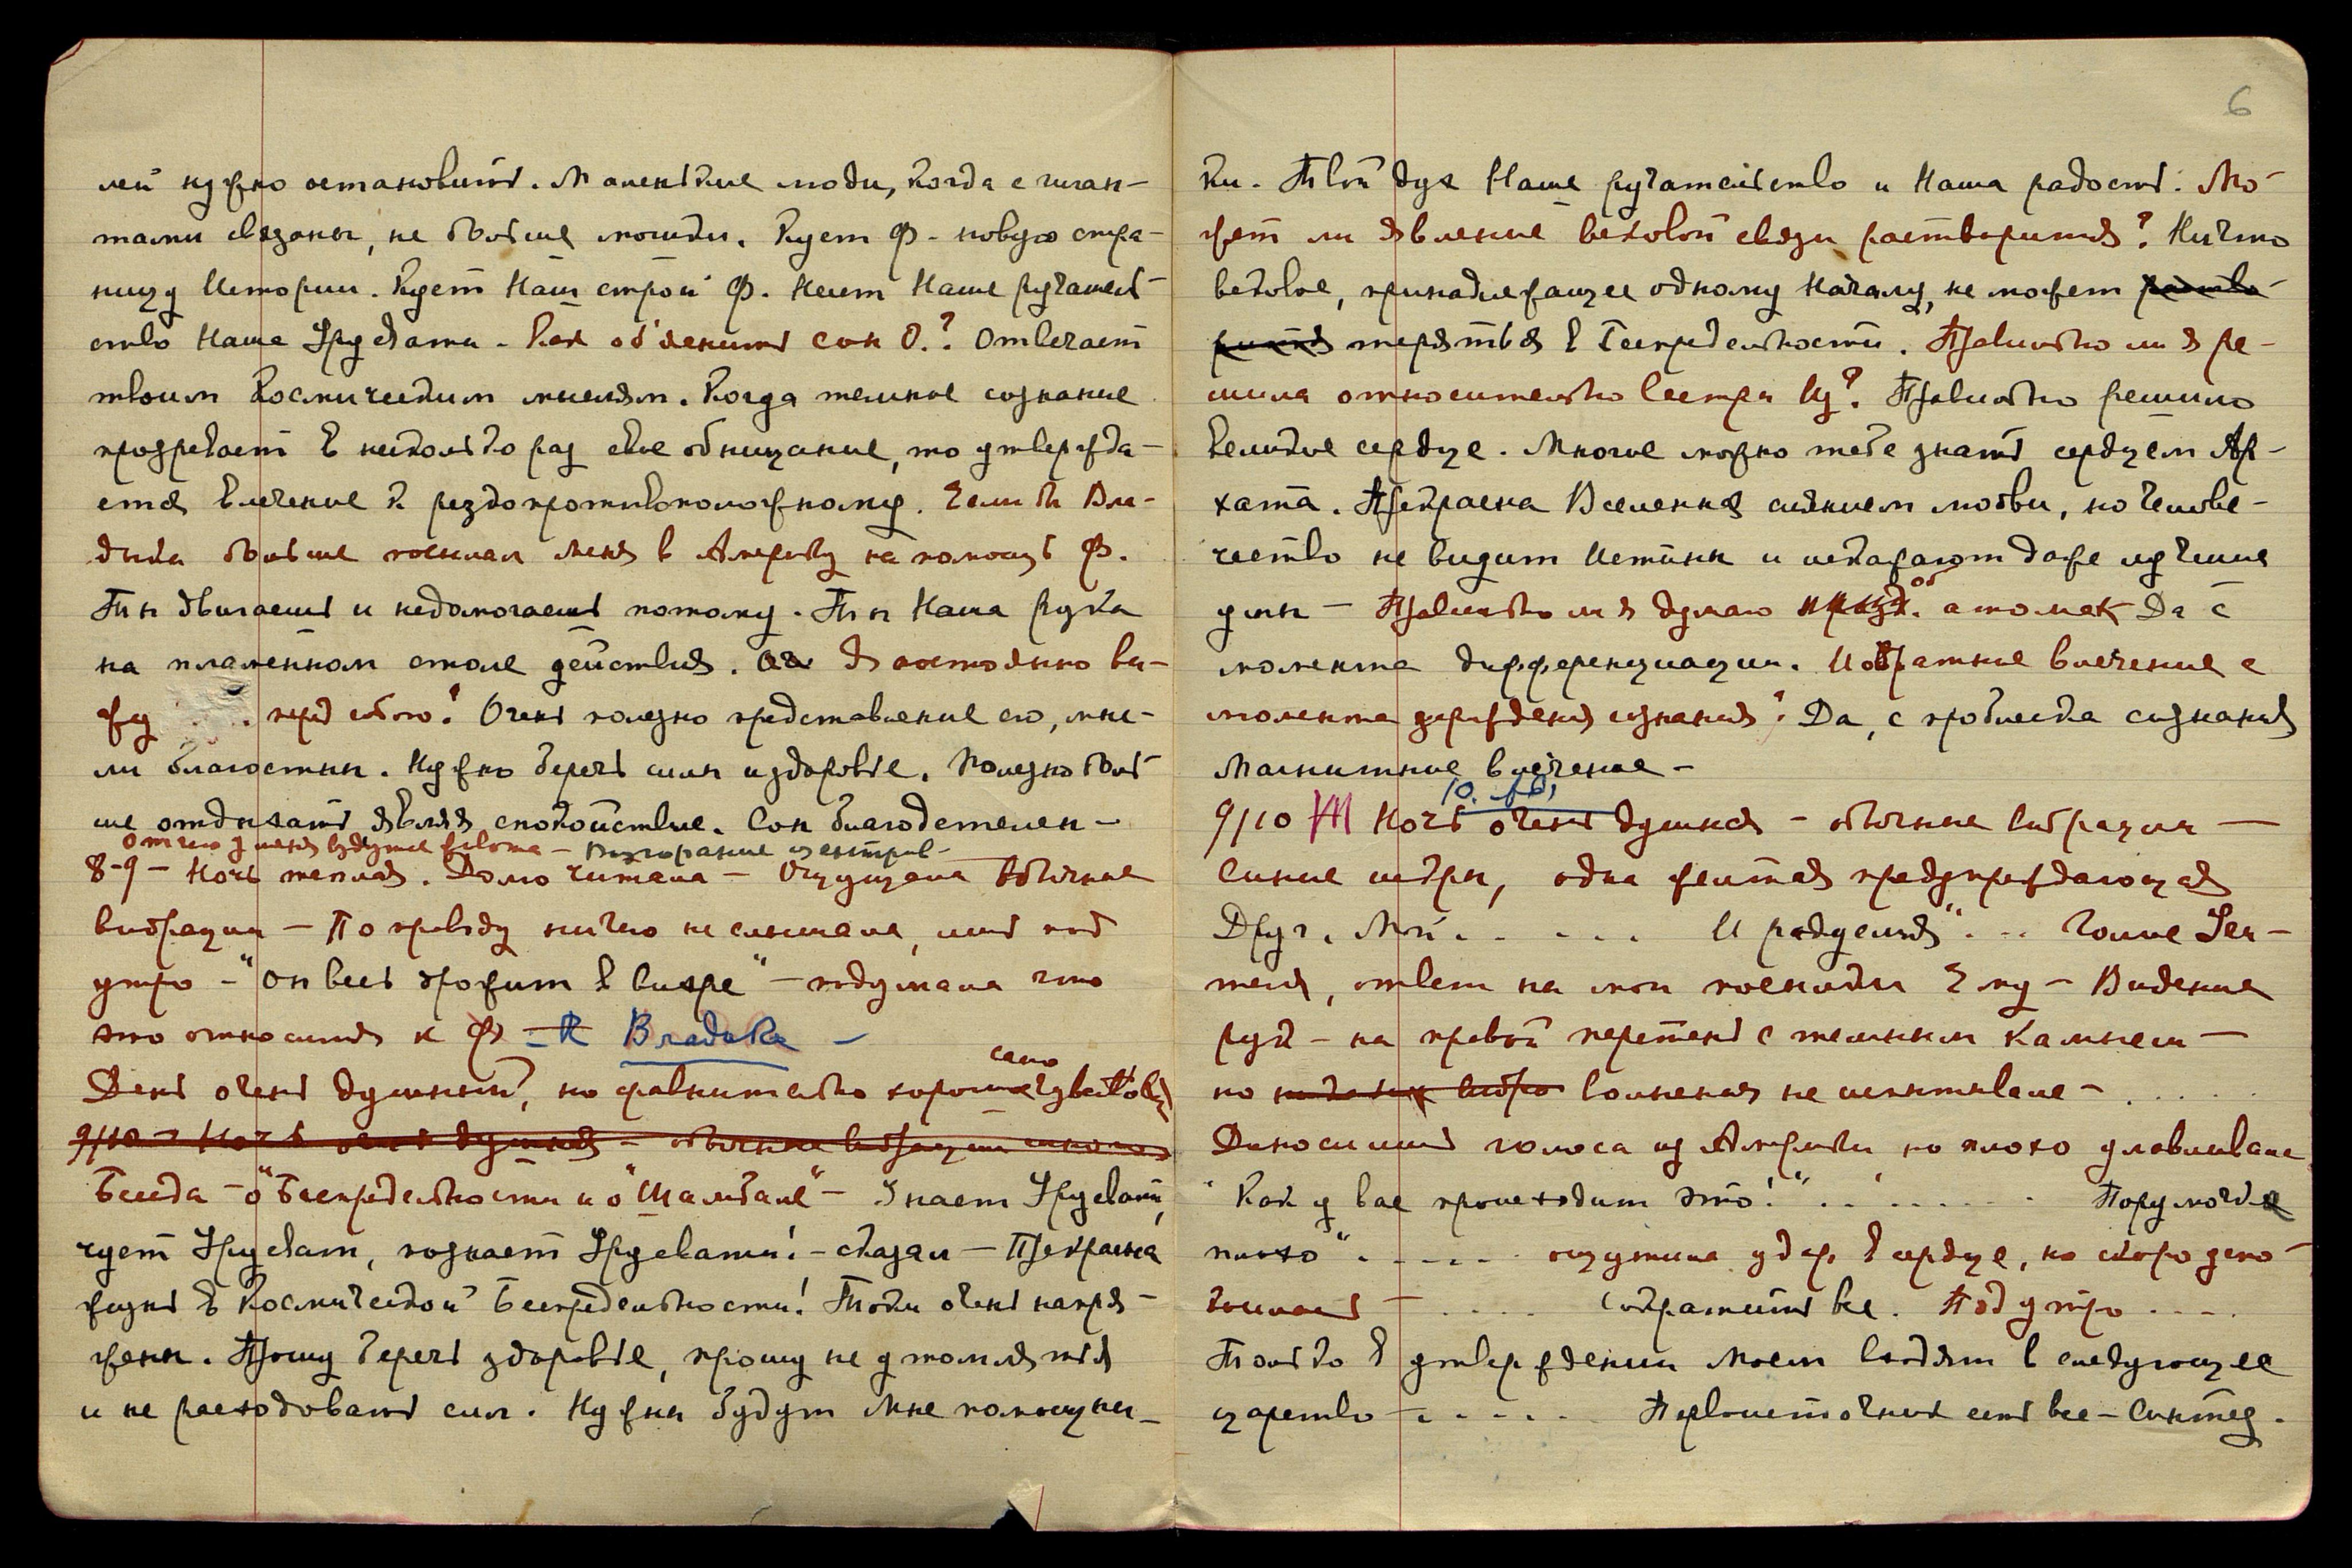 лей нужно остановить. Маленькие люди, когда с гиган-
тами связаны, не больше мошки. Кует Ф. новую стра-
ницу Истории. Кует Наш строй Ф. Несет Наше ручатель-
ство Наша Урусвати. Как об'яснить сон О.? Отвечает
твоим Космическим мыслям. Когда темное сознание
прозревает в несколько раз свое обнищание, то утвержда-
ется влечение к резкопротивоположному. Если бы Вла-
дыка больше посылал меня в Америку на помощь Ф.
Ты двигаешь и недомогаешь потому. Ты Наша рука
на пламенном столе действия. Я постоянно ви-
жу . . перед собою? Очень полезно представление его, мыс-
ли благостны. Нужно беречь силы и здоровье. Полезно боль-
ше отдыхать являя спокойствие. Сон благодетелен —
отчего у меня вздутие живота — Возгорание центров —
8-9 — Ночь теплая. Долго читала — Ощущала обычные
вибрации — По проводу ничего не слышала, лишь под
утро — "Он весь дрожит в вихре" — подумала что
это относится к Ф — К Владыке —
День очень душный, но сравнительно хорошо само чувствов.
9/10 — Ночь очень душная — обычные вибрации
Беседа — о "Беспредельности и о "Шамбале" — Знает Урусвати,
чует Урусвати, познает Урусвати! — сказал — Прекрасна
жизнь в Космической Беспредельности! Токи очень напря-
жены. Прошу беречь здоровье, прошу не утомляться
и не расходовать сил. Нужны будут Мне помощни-
6
ки. Твой дух Наше ручательство и Наша радость. Мо-
жет ли явление вековой связи раствориться? Ничто
вековое, принадлежащее одному Началу, не может раство-
риться теряться в Беспредельности. Правильно ли я ре-
шила относительно сестры Из? Правильно решило
великое сердце. Многое можно тебе знать сердцем Ар-
хата. Прекрасна Вселенная сиянием любви, но челове-
чество не видит Истины и искажают даже лучшие
умы — Правильно ли я думаю об атомах Да с
момента дифференциации. И обратное влечение с
момента зарождения сознания? Да, с проблеска сознания
Магнитное влечение —
9/10 Ночь очень душная — обычные вибрации —
Синие искры, одна желтая предупреждающая
Друг, Мой . . . . . И радуемся" . . . Голос Учи-
теля, ответ на мои посылки Ему — Видение
рук — на правой перстень с темным камнем —
но волнения не испытывала — . . . . .
Доносились голоса из Америки но плохо улавливала
"Как у вас происходит это!" . . . . . .
плохо" . . . . . ощутила удар в сердце, но скоро успо-
коилась — . . . . Сократить все. Под утро . . . .
Только в утверждении Моем входят в следующее
царство — . . . . Первоисточник есть все — Синтез.